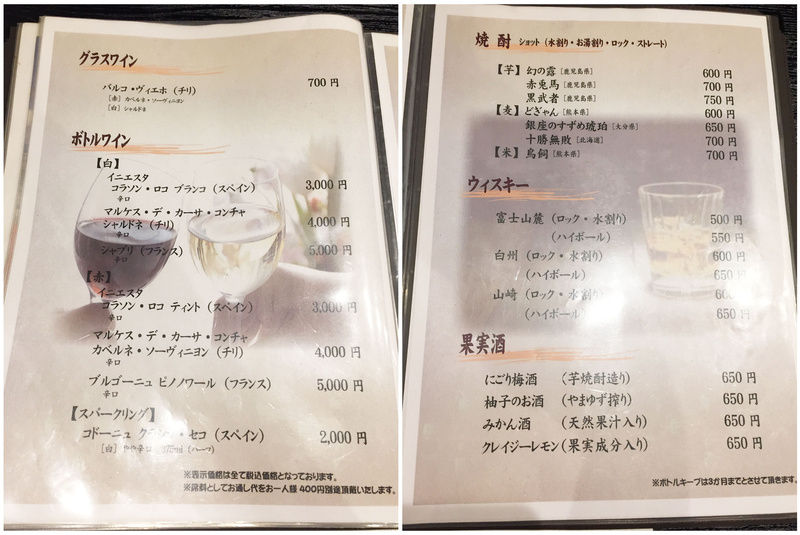 グラスワイン
バルコ・ヴィエホ（チリ） 700 円
［赤］カベルネ・ソーヴィニヨン
［白］シャルドネ
ボトルワイン
【白】
イニエスタ
コラソン・ロコ ブランコ（スペイン） 3,000 円
辛口
マルケス・デ・カーサ・コンチャ
シャルドネ（チリ） 4,000 円
辛口
シャブリ（フランス） 5,000 円
辛口
【赤】
イニエスタ
コラソン・ロコ ティント（スペイン） 3,000 円
辛口
マルケス・デ・カーサ・コンチャ
カベルネ・ソーヴィニヨン（チリ） 4,000 円
辛口
ブルゴーニュ ピノノワール（フランス） 5,000 円
【スパークリング】
コドーニュ クラシコ・セコ（スペイン） 2,000 円
［白］やや辛口 375ml（ハーフ）
※表示価格は全て税込価格となっております。
※席料としてお通し代をお一人様 400円別途頂戴いたします。
焼酎 ショット（水割り・お湯割り・ロック・ストレート）
【芋】幻の露［鹿児島県］ 600 円
赤兎馬［鹿児島県］ 700 円
黒武者［鹿児島県］ 750 円
【麦】どぎゃん［熊本県］ 600 円
銀座のすずめ琥珀［大分県］ 650 円
十勝無敗［北海道］ 700 円
【米】鳥飼［熊本県］ 700 円
ウィスキー
富士山麓（ロック・水割り） 500 円
（ハイボール） 550 円
白州（ロック・水割り） 600 円
（ハイボール） 650 円
山崎（ロック・水割り） 600 円
（ハイボール） 650 円
果実酒
にごり梅酒（芋焼酎造り） 650 円
柚子のお酒（やまゆず搾り） 650 円
みかん酒（天然果汁入り） 650 円
クレイジーレモン（果実成分入り） 650 円
※ボトルキープは3か月までとさせて頂きます。